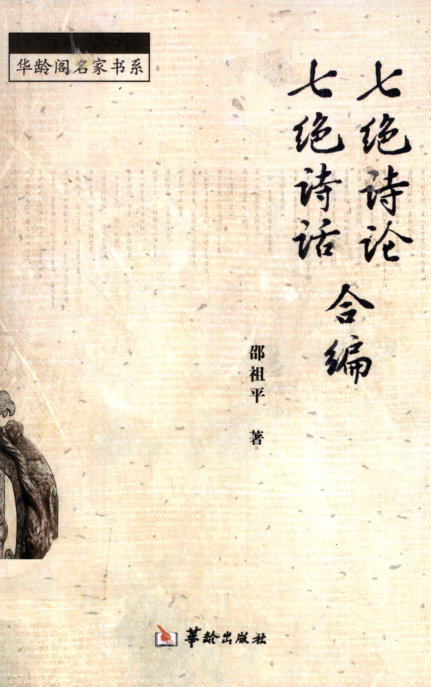 华龄阁名家书系
七绝诗论
七绝诗话
合编
邵祖平 著
华龄出版社